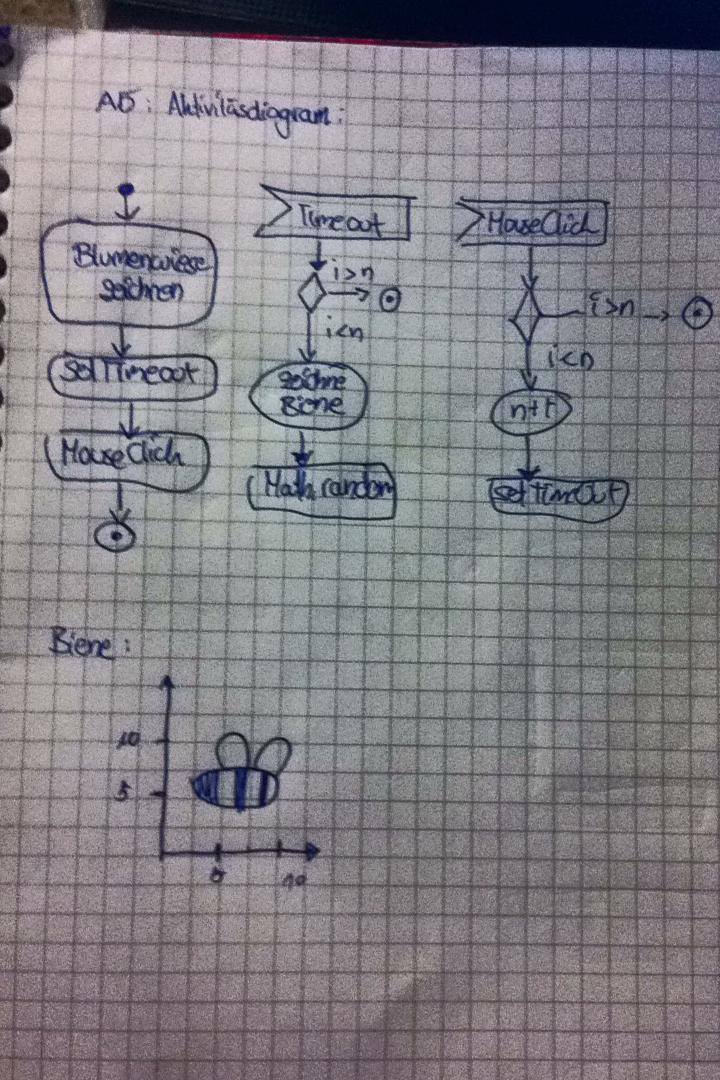 AD: Aktivitäsdiagram:
Blumenwiese
zeichnen
SetTimeout
MouseClick
Timeout
i>n
i<n
zeichne
Biene
Math.random
MouseClick
i>n
i<n
setTimeOut
Biene:
10
5
10